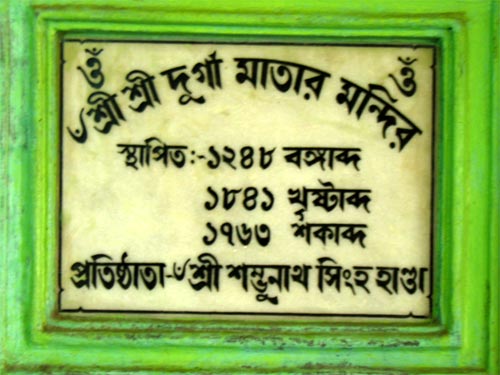 ওঁ ৺শ্রী শ্রী দুর্গা মাতার মন্দির ওঁ
স্থাপিত:-১২৪৮ বঙ্গাব্দ
১৮৪১ খৃষ্টাব্দ
১৭৬৩ শকাব্দ
প্রতিষ্ঠাতা-৺শ্রী শম্ভুনাথ সিংহ হাণ্ডা